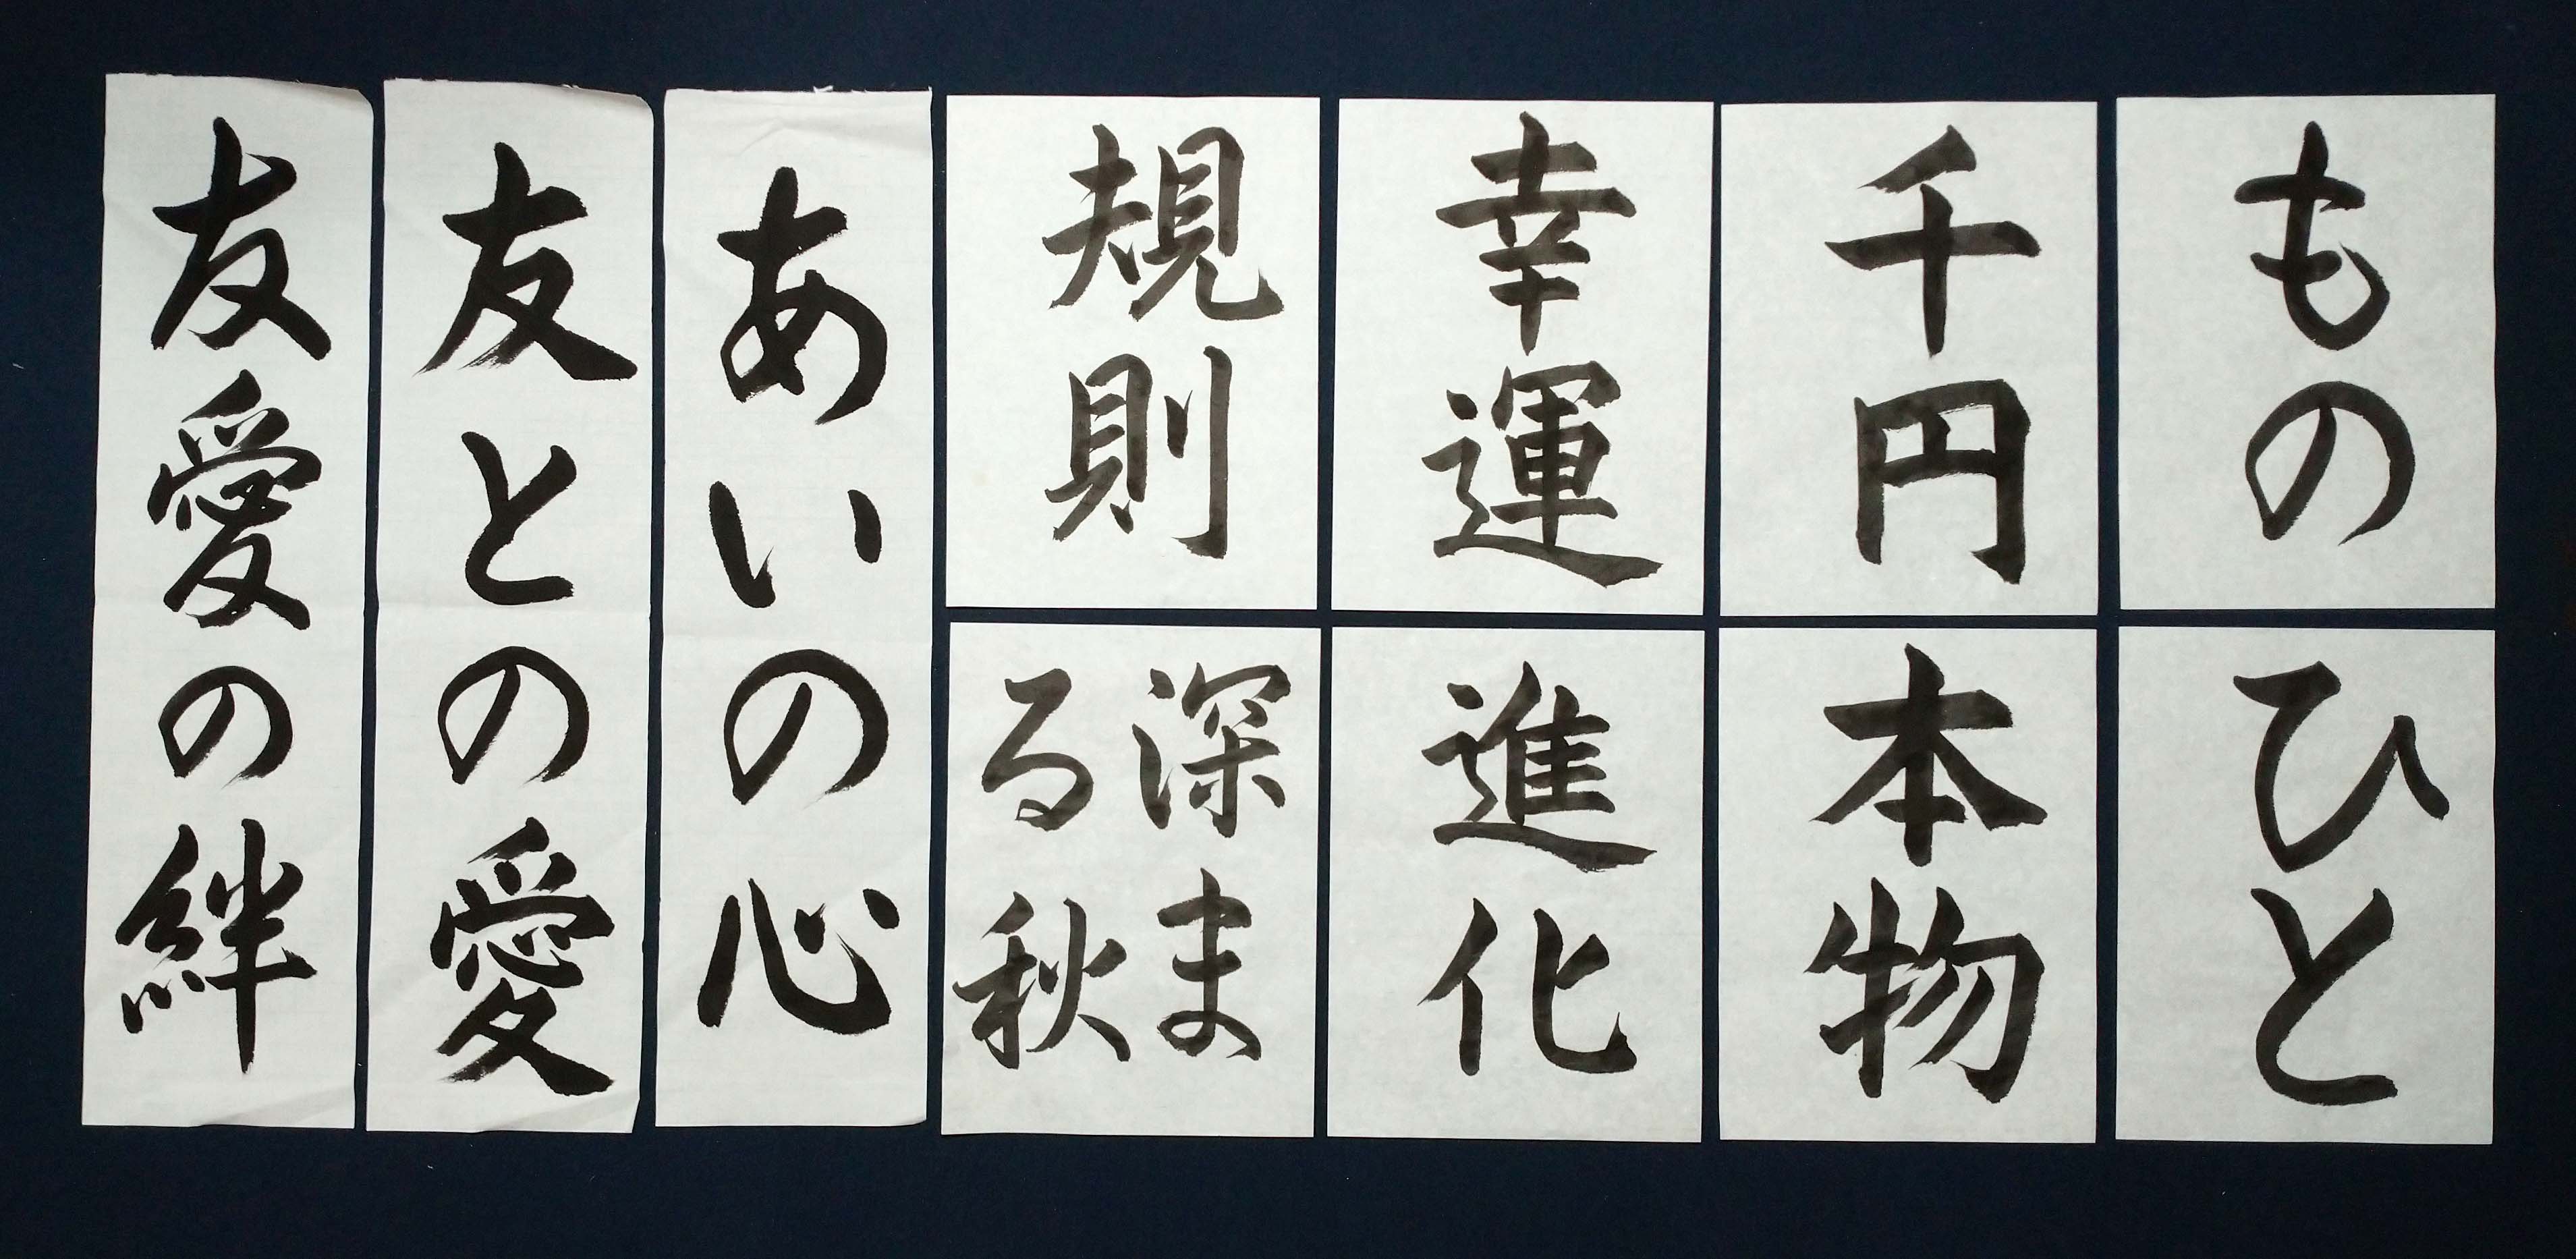 もの
ひと
千円
本物
幸運
進化
規則
深ま
る秋
あいの心
友との愛
友愛の絆